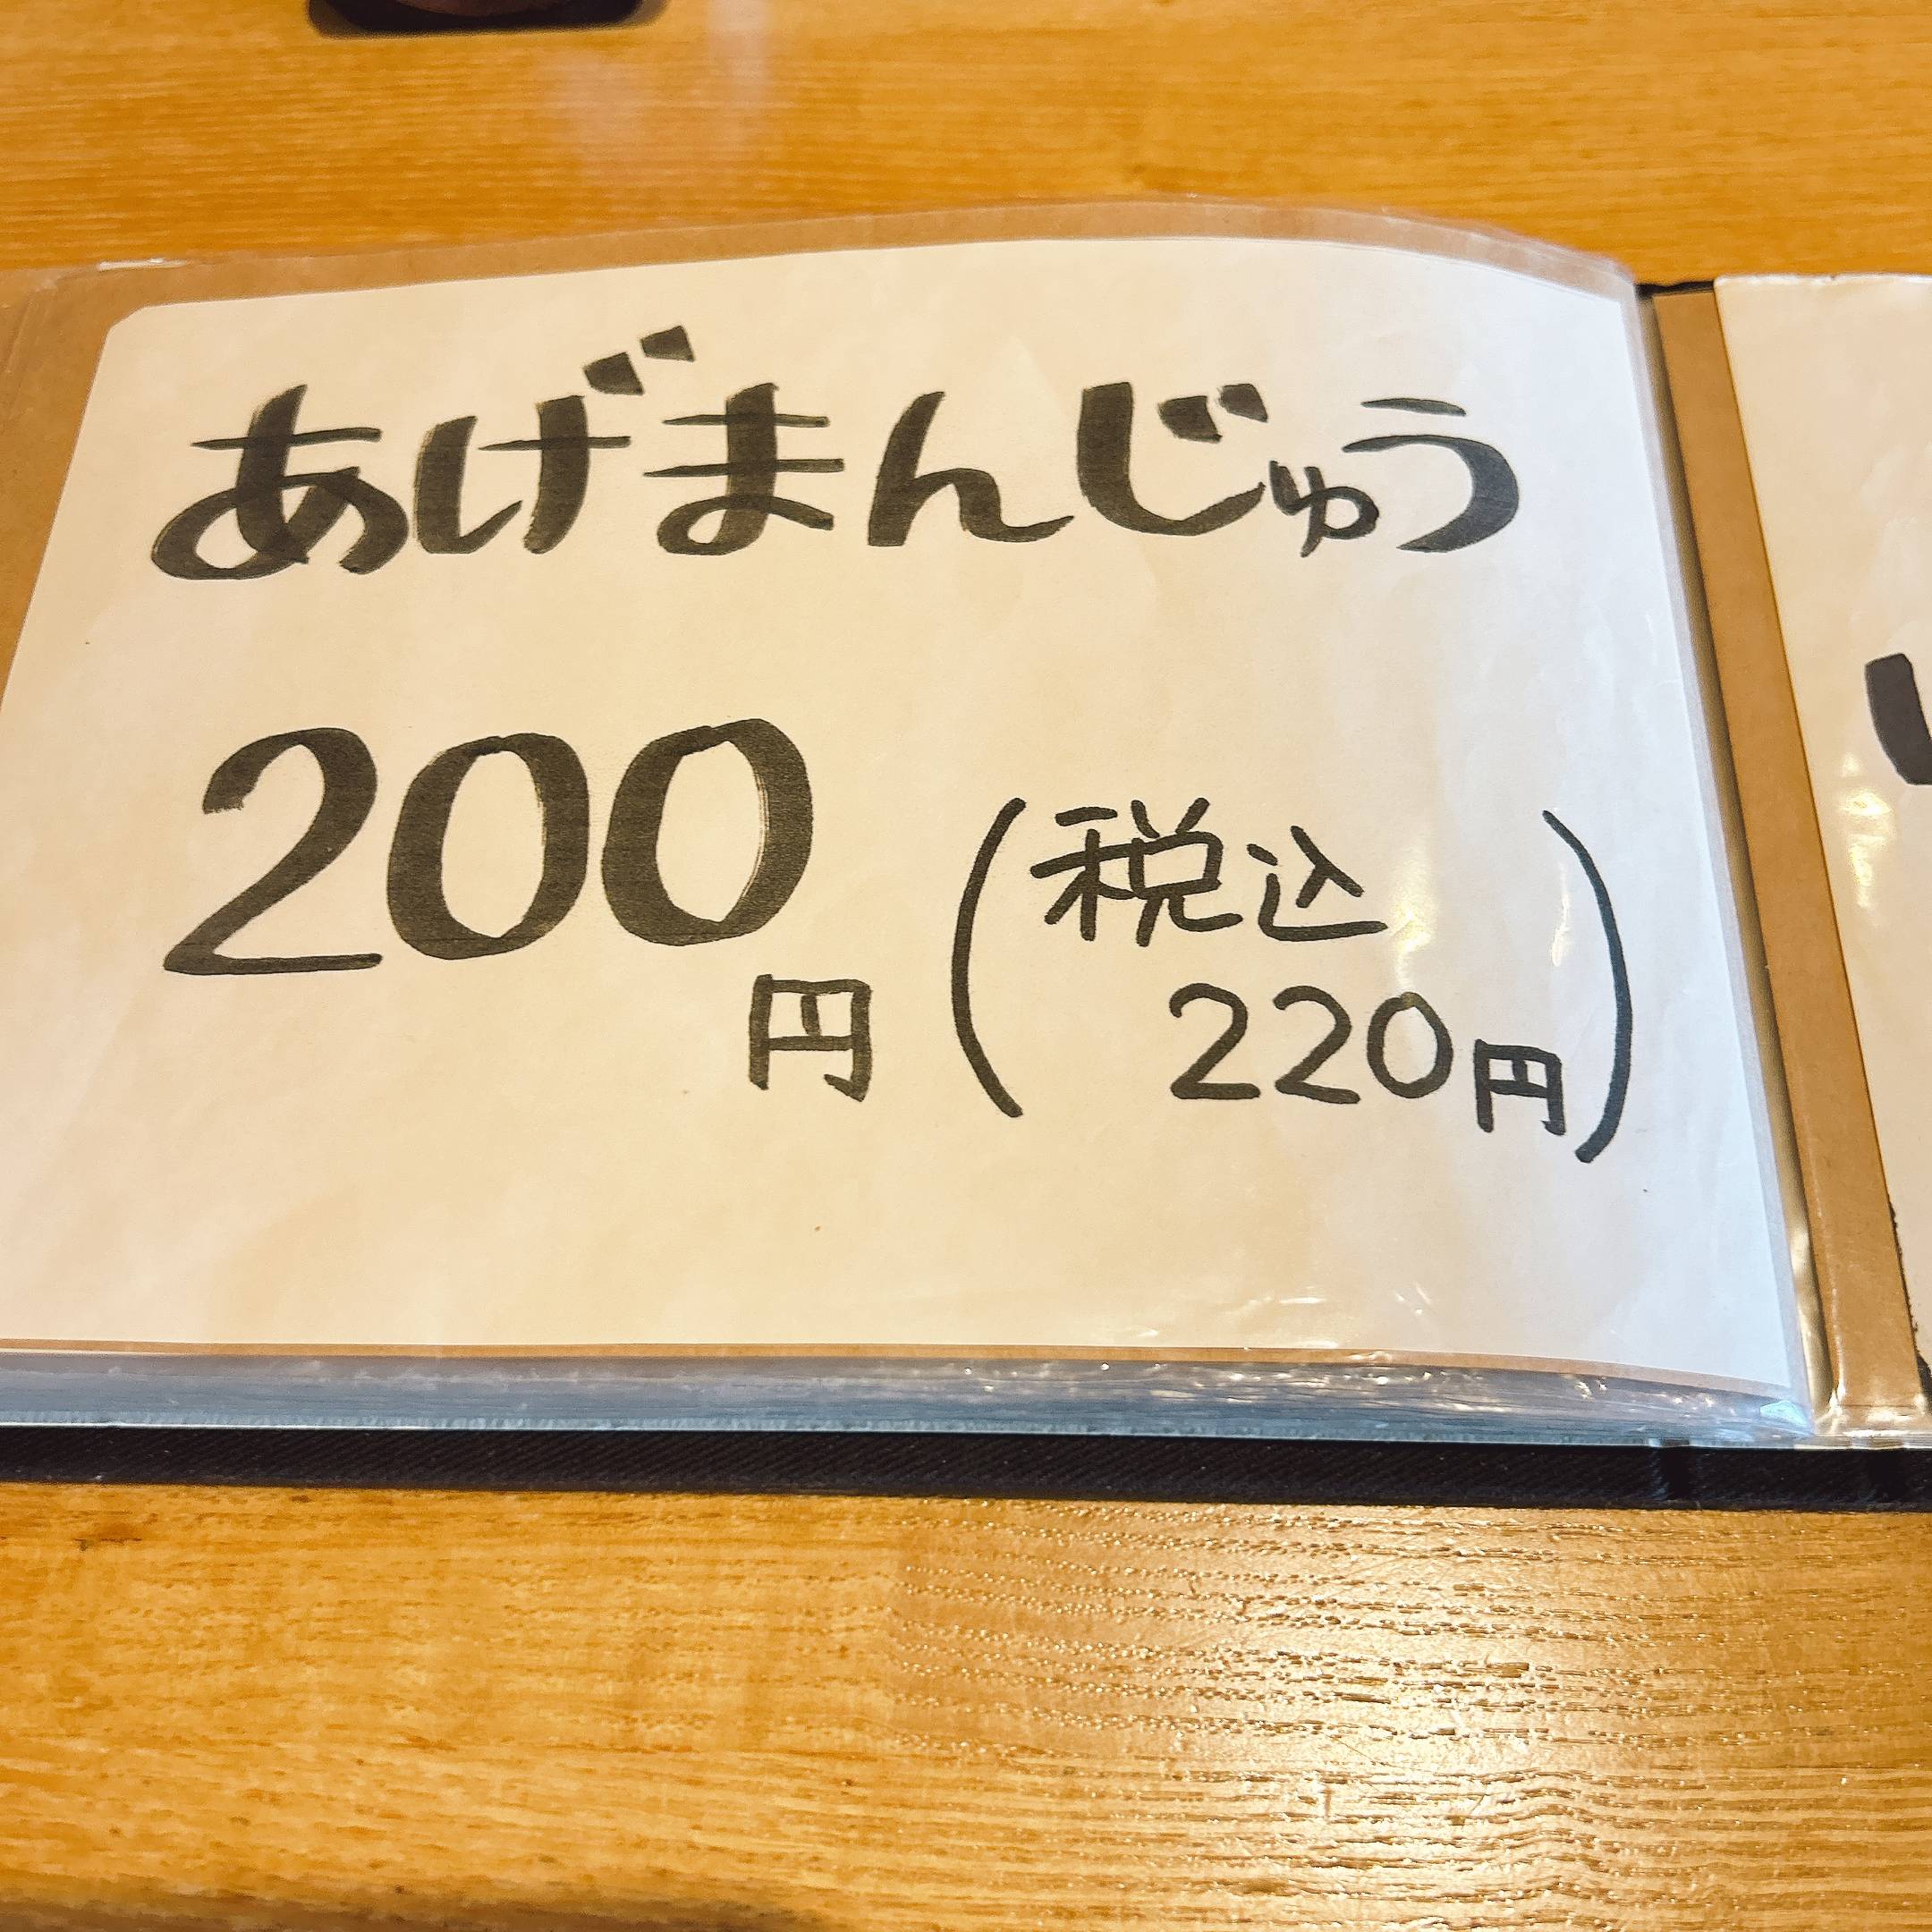 あげまんじゅう
200円（税込
220円）